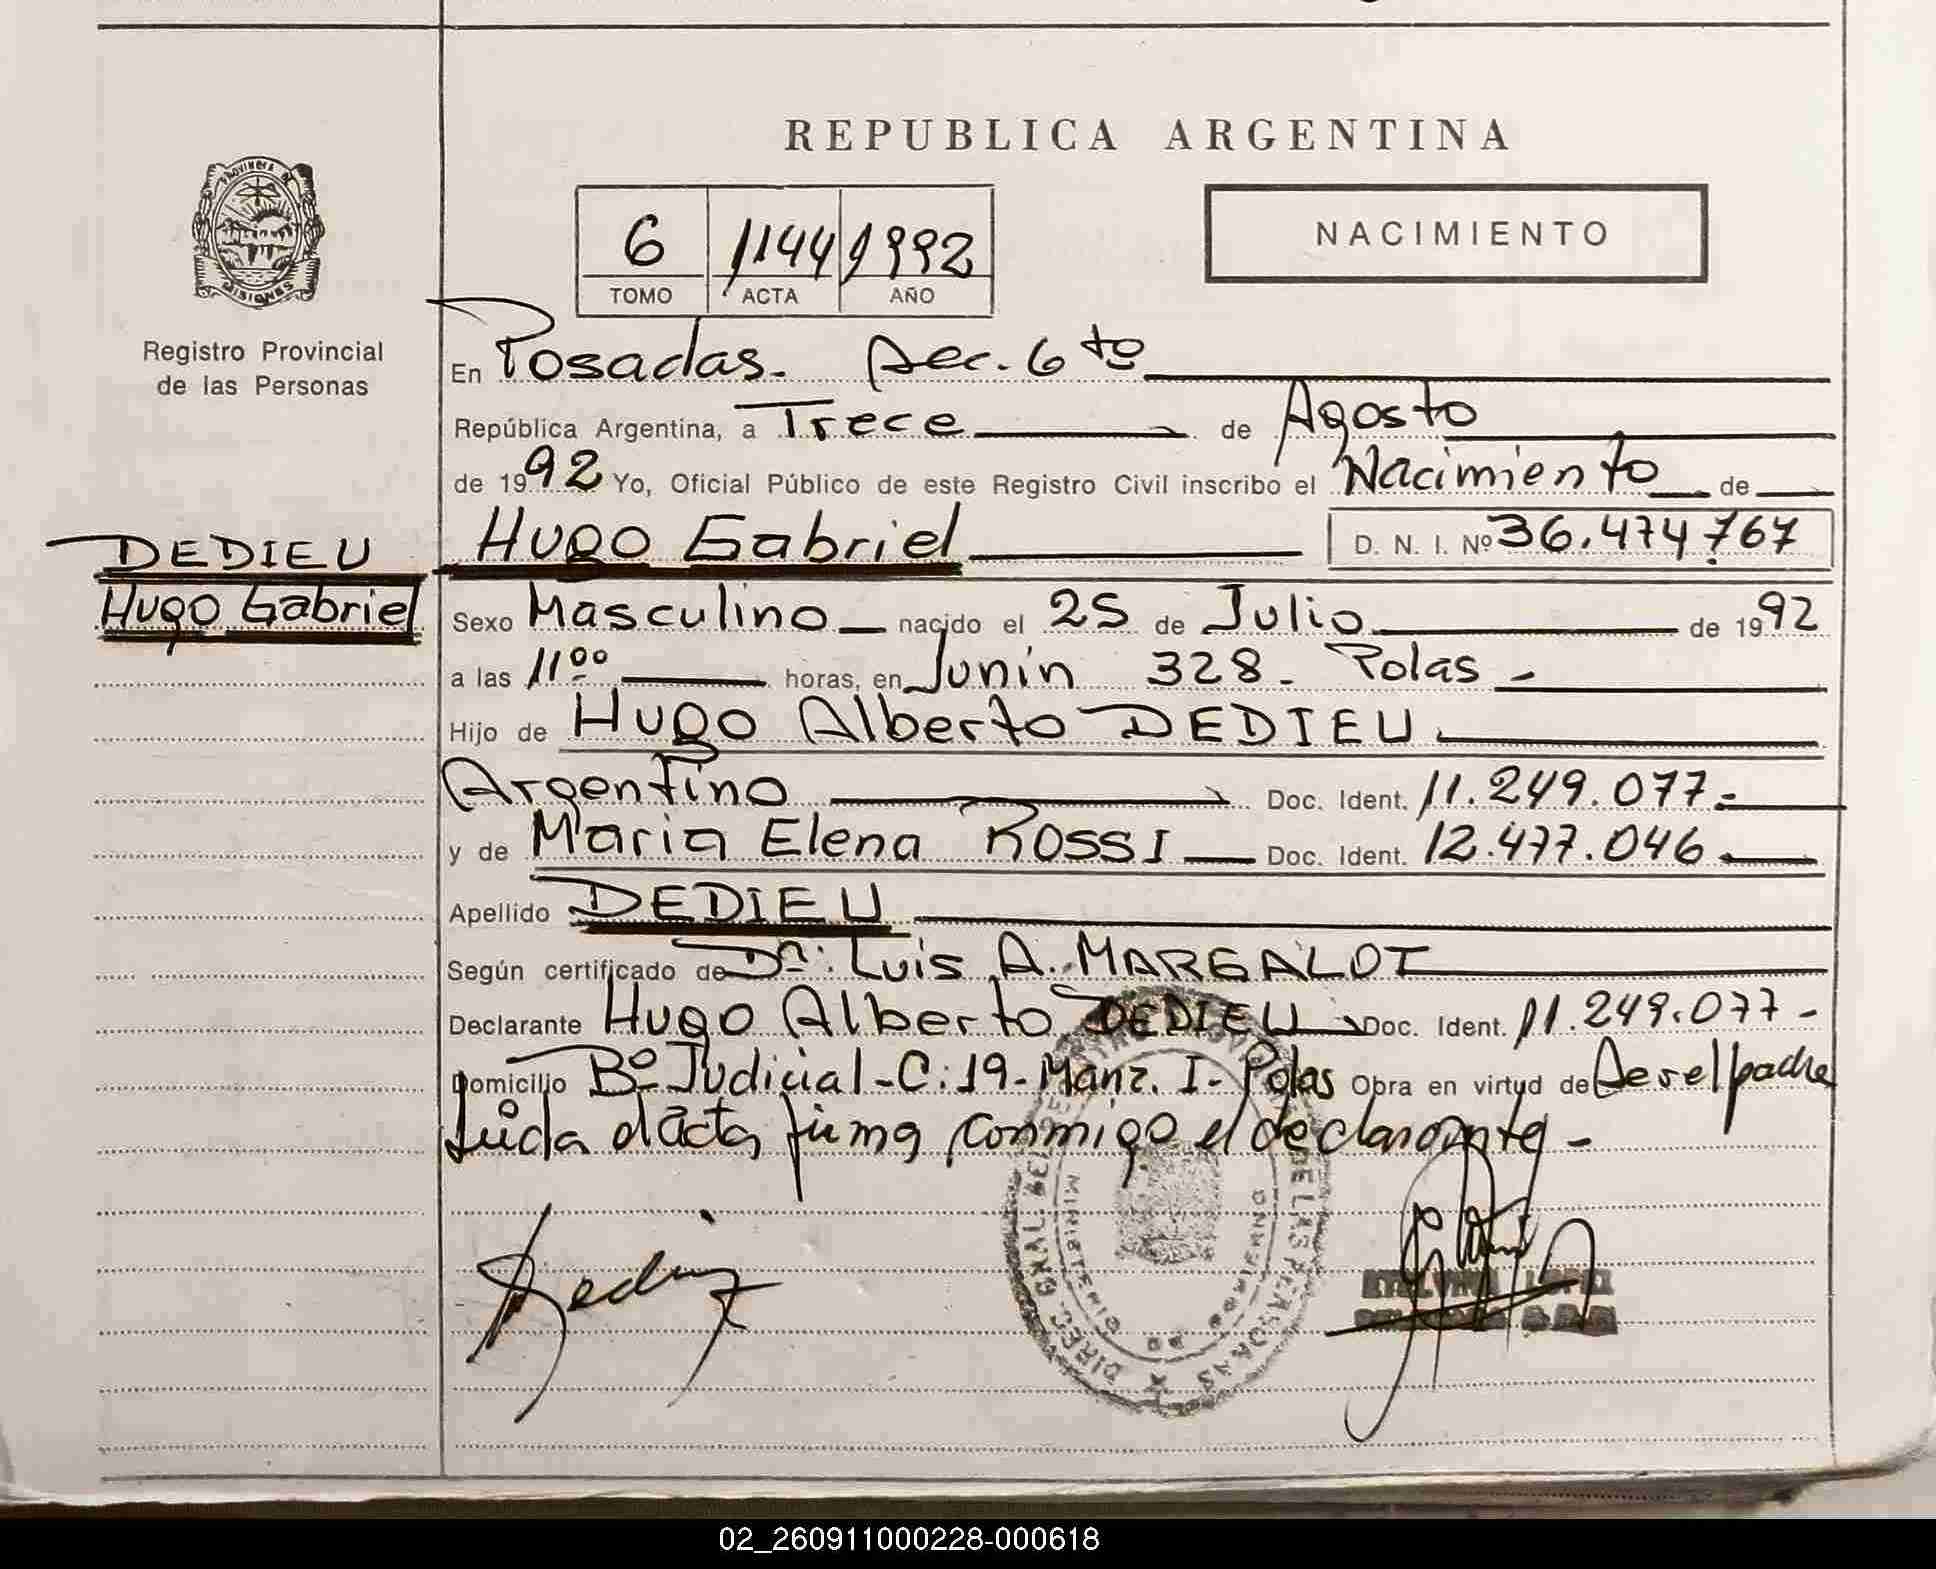 REPUBLICA ARGENTINA
PROVINCIA DE
MISIONES
Registro Provincial
de las Personas
6 1144 1992
TOMO ACTA AÑO
NACIMIENTO
En Posadas. Sec. 6to
República Argentina, a Trece de Agosto
de 1992 Yo, Oficial Público de este Registro Civil inscribo el Nacimiento de
DEDIEU
Hugo Gabriel
Hugo Gabriel D. N. I. Nº 36.474.767
Sexo Masculino nacido el 25 de Julio de 1992
a las 11ºº horas, en Junín 328 - Pdas -
Hijo de Hugo Alberto DEDIEU.
Argentino Doc. Ident. 11.249.077.-
y de Maria Elena ROSSI Doc. Ident. 12.477.046.
Apellido DEDIEU
Según certificado de Dr. Luis A. MARGALOT
Declarante Hugo Alberto DEDIEU Doc. Ident. 11.249.077-
Domicilio Bº Judicial - C:19 - Manz. I - Pdas Obra en virtud de ser el padre
Leida el acta firma conmigo el declarante -
DIREC. GRAL. DEL REGISTRO PROVINCIAL DE LAS PERSONAS
MINISTERIO DE GOBIERNO
02_260911000228-000618